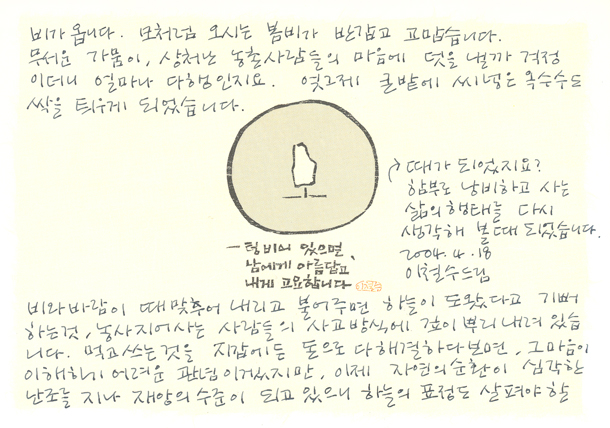 비가 옵니다. 모처럼 오시는 봄비가 반갑고 고맙습니다.
무서운 가뭄이, 상처난 농촌사람들의 마음에 덧을 낼까 걱정
이더니 얼마나 다행인지요. 엊그제 큰밭에 씨넣은 옥수수도
싹을 틔우게 되었습니다.
– 텅비어 있으면,
남에게 아름답고,
내게 고요합니다.
비와 바람이 때맞추어 내리고 불어주면 하늘이 도왔다고 기뻐
하는것, 농사지어사는 사람들의 사고방식에 깊이 뿌리내려 있습
니다. 먹고쓰는것을 지갑에든 돈으로 다해결하다보면, 그마음이
이해하기 어려운 관념이겠지만, 이제 자연의순환이 심각한
난조를 지나 재앙의 수준이 되고 있으니 하늘의 표정도 살펴야 할
때가 되었지요?
함부로 낭비하고 사는
삶의 형태를 다시
생각해 볼 때 되었습니다.
2004. 4. 18
이철수드림